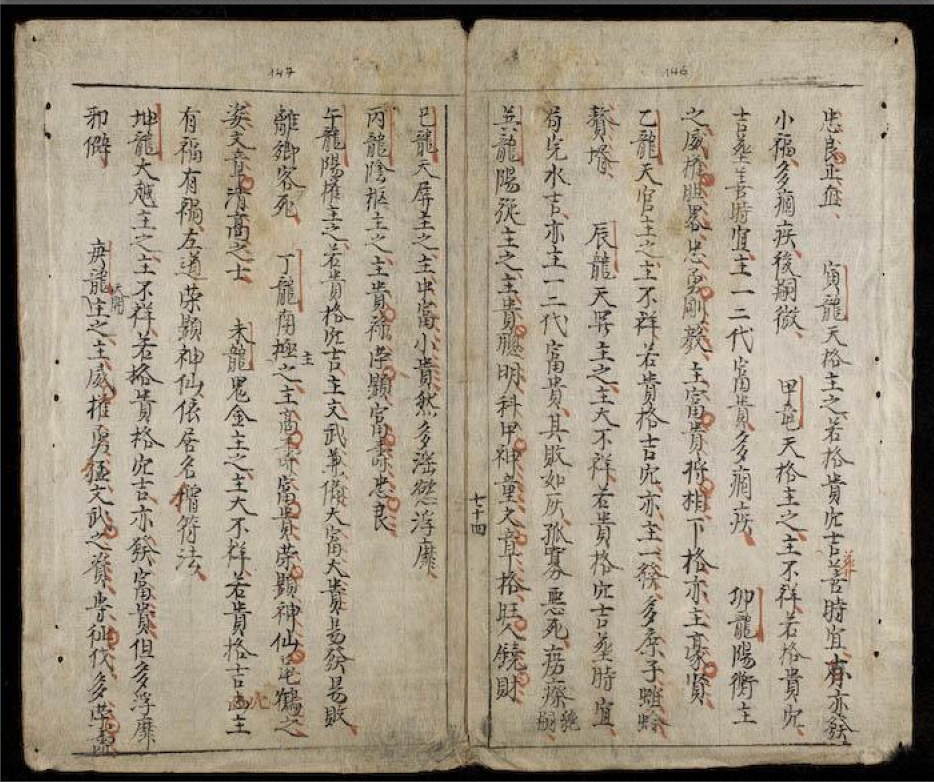 146
忠良正血 寅龍天格主之若格貴穴吉葬時宜亦發
小福多痼疾後嗣微 甲龍天格主之主不祥若格貴穴
吉塟善時宜主一二代富貴多痼疾 卯龍陽衡主
之威權胆畧忠勇剛毅主富貴將相下格亦主豪賢
乙龍天官主之主不祥若貴格吉穴亦主一發多庶子螟蛉
贅婿 辰龍天罡主之主大不祥若貴格穴吉塟時宜
苟完水吉亦主一二代富貴其敗如灰孤寡惡死癆瘵絶嗣
巽龍陽璇主之主貴聰明科甲神童文章格旺人饒財
七十四
147
巳龍天屏主之主中富小貴然多淫慾浮靡
丙龍陰樞主之主貴祿榮顯富壽忠良
午龍陽權主之若貴格穴吉主文武兼備大富大貴易發易敗
離鄉客死 丁龍南極主之主高壽富貴榮顯神仙龜鶴之
姿文章清高之士 未龍鬼金主之主大不祥若貴格吉穴主
有福有禍左道榮顯神仙依居名僧符法
坤龍大越主之主不祥若格貴格穴吉亦發富貴但多浮靡
邪僻 庚龍天關主之主威權勇猛文武之資專征伐多